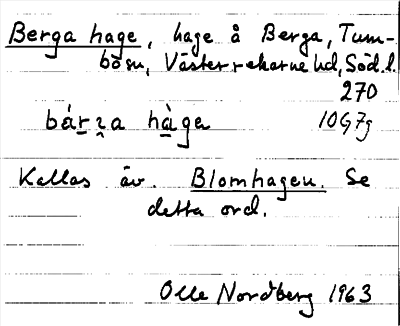 Berga hage, hage å Berga, Tum-
bo sn, Västerrekarne hd, Södl.
270
bárza hàge 10G7g
Kallas äv. Blomhagen. Se
detta ord.
Olle Nordberg 1963